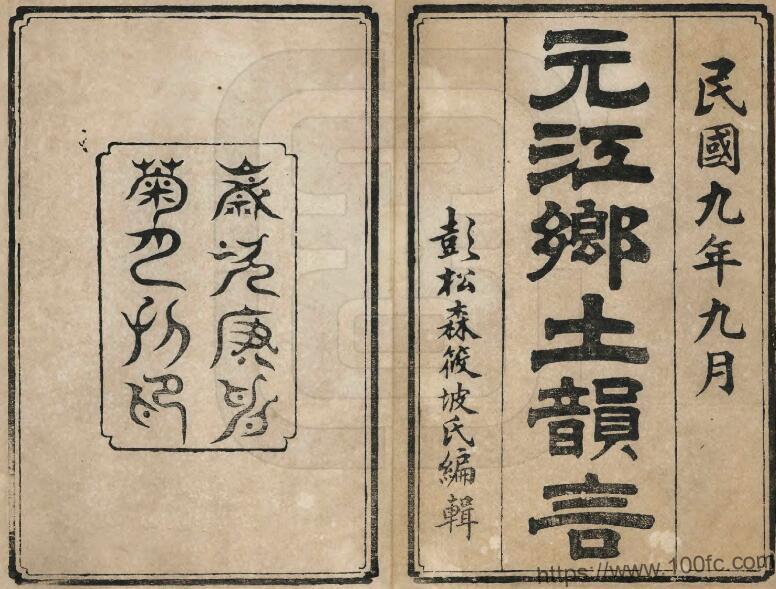 民國九年九月
元江鄉土韻言
彭松森筱坡氏編輯
歲次庚申
菊月刊印
https://www.100fc.com